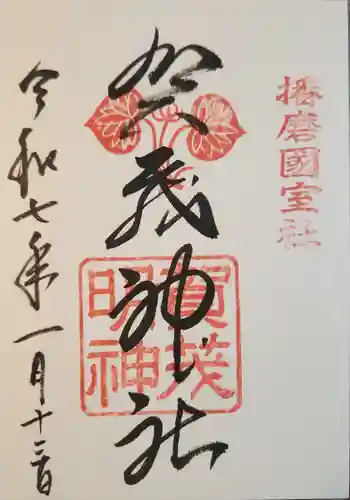 播磨國室社
賀茂神社
賀茂明神
令和七年一月十二日